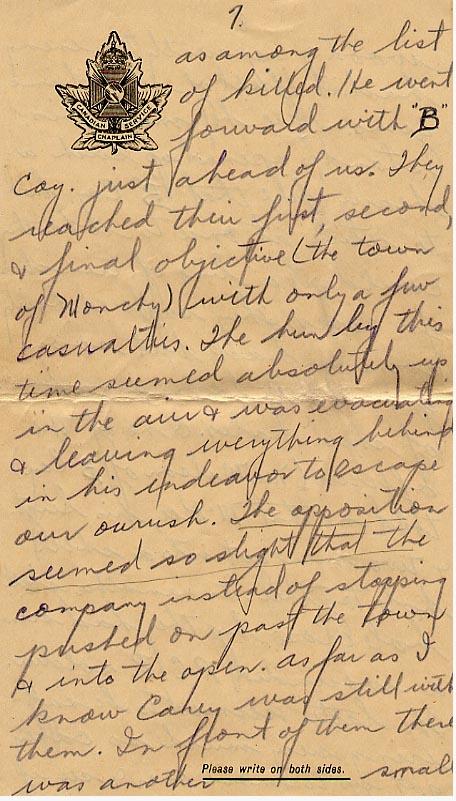 7.
CANADIAN CHAPLAIN SERVICE
as among the list
of killed. He went
forward with "B"
Coy. just ahead of us. They
reached their first, second,
& final objective (the town
of Monchy) with only a few
casualties. The hun by this
time seemed absolutely up
in the air & was evacuating
& leaving everything behind
in his endeavor to escape
our onrush. The opposition
seemed so slight that the
company instead of stopping
pushed on past the town
& into the open. As far as I
know Carey was still with
them. In front of them there
was another small
Please write on both sides.